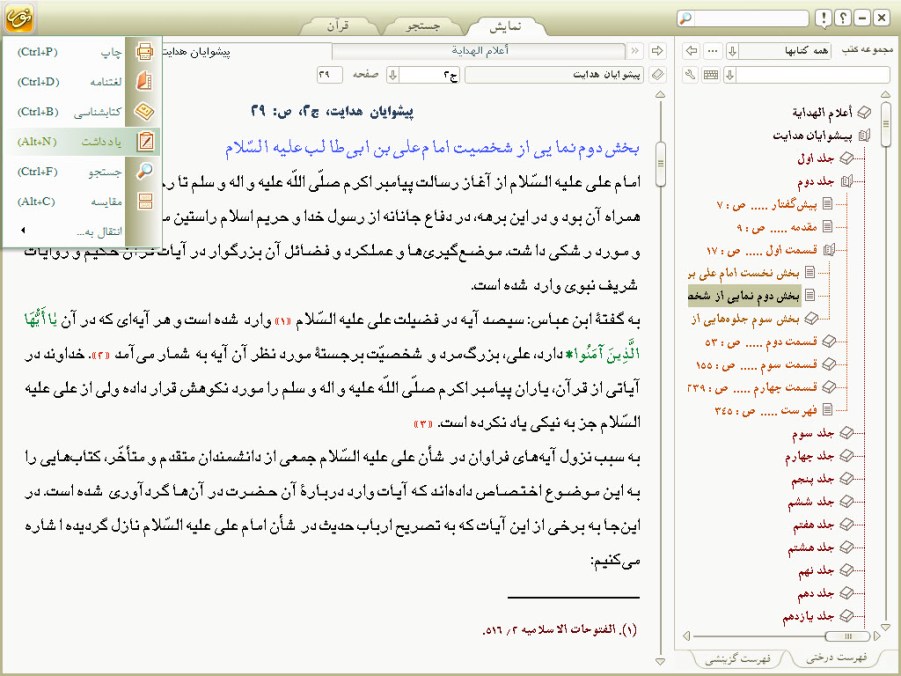 نمایش
جستجو
قرآن
نور
مجموعه کتب
همه کتابها
أعلام الهدایة
پیشوایان هدایت
پیشوایان هدایت
ج۲
صفحه
۲۹
چاپ (Ctrl+P)
لغتنامه (Ctrl+D)
کتابشناسی (Ctrl+B)
یادداشت (Alt+N)
جستجو (Ctrl+F)
مقایسه (Alt+C)
انتقال به...
أعلام الهدایة
پیشوایان هدایت
جلد اول
جلد دوم
پیش‌گفتار ..... ص : ۷
مقدمه ..... ص : ۹
قسمت اول ..... ص : ۱۷
بخش نخست امام علی بر
بخش دوم نمایی از شخص
بخش سوم جلوه‌هایی از
قسمت دوم ..... ص : ۵۳
قسمت سوم ..... ص : ۱۵۵
قسمت چهارم ..... ص : ۲۳۹
فهرست ..... ص : ۳۴۵
جلد سوم
جلد چهارم
جلد پنجم
جلد ششم
جلد هفتم
جلد هشتم
جلد نهم
جلد دهم
جلد یازدهم
فهرست درختی
فهرست گزینشی
پیشوایان هدایت، ج۲، ص: ۲۹
بخش دوم نمایی از شخصیت امام علی بن ابی طالب علیه السّلام
امام علی علیه السّلام از آغاز رسالت پیامبر اکرم صلّی اللّه علیه و اله و سلم تا
همراه آن بود و در این برهه، در دفاع جانانه از رسول خدا و حریم اسلام راستین
و مورد رشکی داشت. موضع‌گیری‌ها و عملکرد و فضائل آن بزرگوار در آیات قرآن حکیم و روایات
شریف نبوی وارد شده است.
به گفتهٔ ابن عباس: سیصد آیه در فضیلت علی علیه السّلام «۱» وارد شده است و هر آیه‌ای که در آن یٰا أَیُّهَا
الَّذِینَ آمَنُوا* دارد، علی، بزرگ‌مرد و شخصیّت برجستهٔ مورد نظر آن آیه به شمار می‌آمد «۲». خداوند در
آیاتی از قرآن، یاران پیامبر اکرم صلّی اللّه علیه و اله و سلم را مورد نکوهش قرار داده ولی از علی علیه
السّلام جز به نیکی یاد نکرده است. «۳»
به سبب نزول آیه‌های فراوان در شأن علی علیه السّلام جمعی از دانشمندان متقدم و متأخّر، کتاب‌هایی را
به این موضوع اختصاص داده‌اند که آیات وارد دربارهٔ آن حضرت در آن‌ها گردآوری شده است. در
این‌جا به برخی از این آیات که به تصریح ارباب حدیث در شأن امام علی علیه السّلام نازل گردیده اشاره
می‌کنیم:
(۱). الفتوحات الاسلامیه ۲/ ۵۱۶.